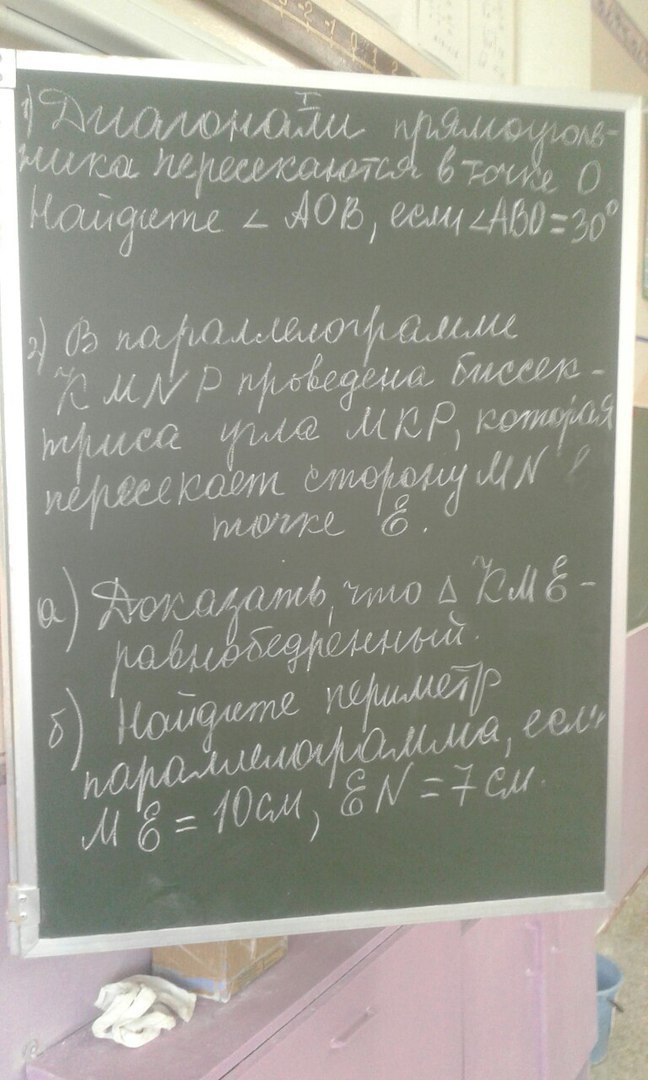 I
1) Диагонали прямоуголь-
ника пересекаются в точке О.
Найдите ∠ АОВ, если ∠АВО = 30°
2) В параллелограмме
KMNP проведена биссек-
триса угла МКР, которая
пересекает сторону MN в
точке Е.
а) Доказать, что △ КМЕ -
равнобедренный.
б) Найдите периметр
параллелограмма, если
МЕ = 10 см, EN = 7 см.